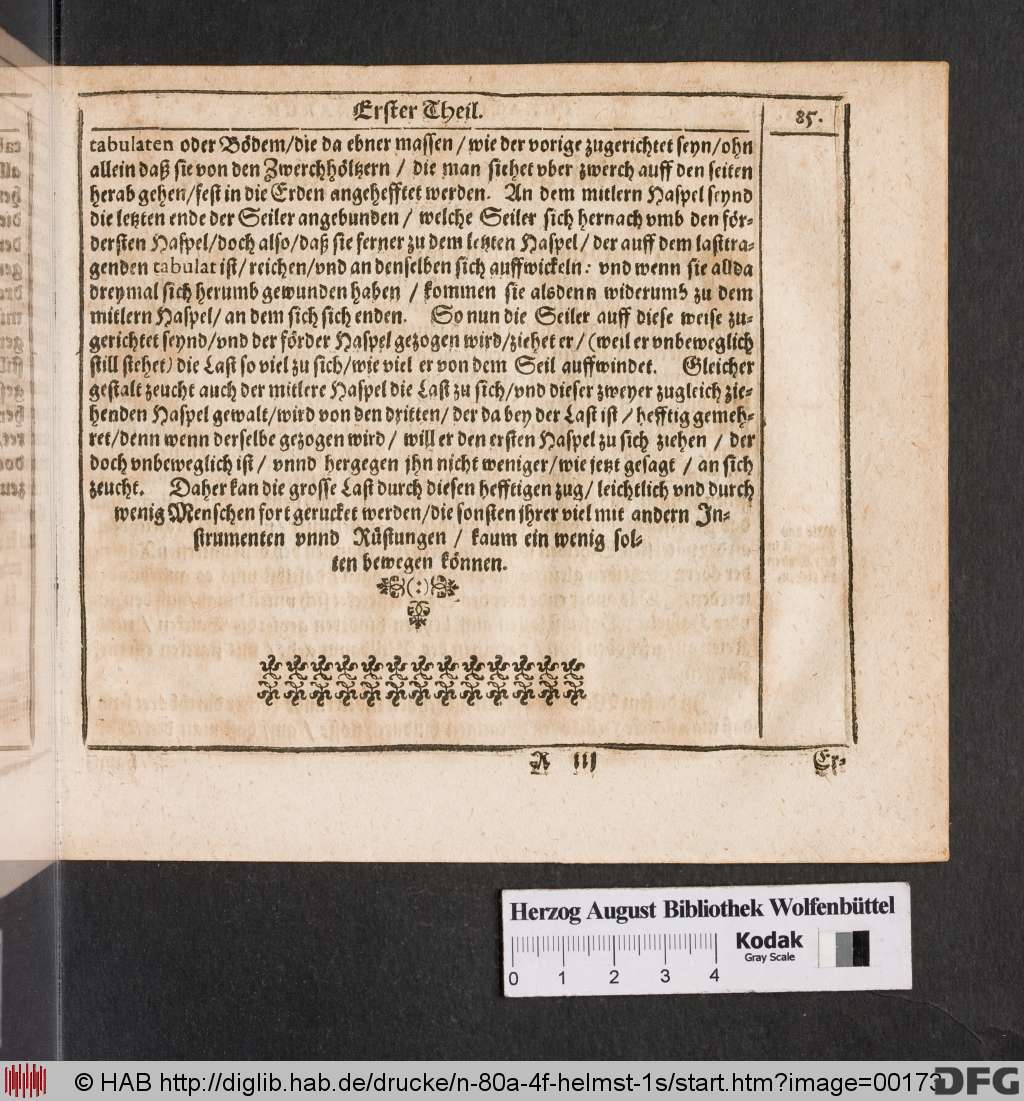 Erster Theil.
85.
tabulaten oder Bödem/die da ebner massen / wie der vorige zugerichtet seyn/ohn
allein daß sie von den Zwerchhöltzern / die man siehet vber zwerch auff den seiten
herab gehen/fest in die Erden angehefftet werden. An dem mitlern Haspel seynd
die letzten ende der Seiler angebunden / welche Seiler sich hernach vmb den för-
dersten Haspel/doch also/daß sie ferner zu dem letzten Haspel / der auff dem lasttra-
genden tabulat ist/ reichen/vnd an denselben sich auffwickeln: vnd wenn sie allda
dreymal sich herumb gewunden haben / kommen sie alsdenn widerumb zu dem
mitlern Haspel/ an dem sich sich enden. So nun die Seiler auff diese weise zu-
gerichtet seynd/vnd der förder Haspel gezogen wird/ziehet er/ (weil er vnbeweglich
still stehet) die Last so viel zu sich/wie viel er von dem Seil auffwindet. Gleicher
gestalt zeucht auch der mitlere Haspel die Last zu sich/vnd dieser zweyer zugleich zie-
henden Haspel gewalt/wird von den dritten/ der da bey der Last ist / hefftig gemeh-
ret/denn wenn derselbe gezogen wird / will er den ersten Haspel zu sich ziehen / der
doch vnbeweglich ist / vnnd hergegen jhn nicht weniger/wie jetzt gesagt / an sich
zeucht. Daher kan die grosse Last durch diesen hefftigen zug/ leichtlich vnd durch
wenig Menschen fort gerucket werden/die sonsten jhrer viel mit andern In-
strumenten vnnd Rüstungen / kaum ein wenig sol-
ten bewegen können.
(:)
R III
Er-
Herzog August Bibliothek Wolfenbüttel
0 1 2 3 4
Kodak
Gray Scale
© HAB http://diglib.hab.de/drucke/n-80a-4f-helmst-1s/start.htm?image=00173
DFG